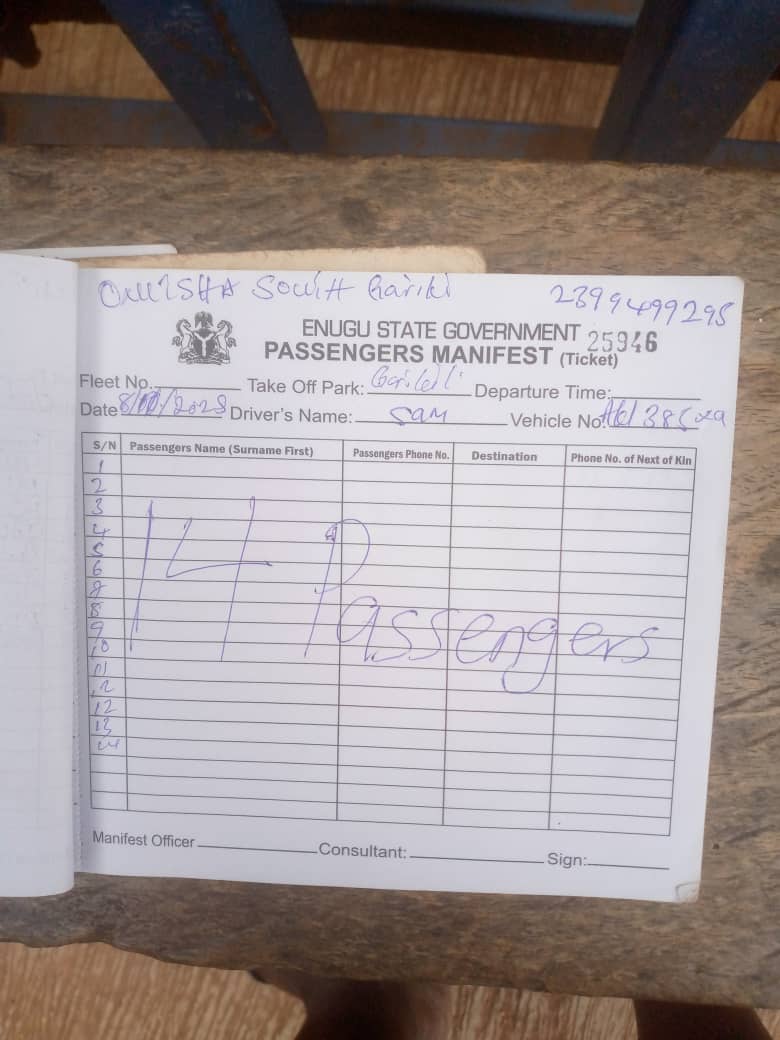 ONITSHA South Gariki 2399499295
ENUGU STATE GOVERNMENT 25946
PASSENGERS MANIFEST (Ticket)
Fleet No. Take Off Park: Gariki Departure Time:
Date Driver's Name: Sam Vehicle No:
S/N Passengers Name (Surname First) Passengers Phone No. Destination Phone No. of Next of Kin
1
2
3
4
5
6
7
8
9
10
11
12
12
13
14
14 Passengers
Manifest Officer Consultant: Sign: